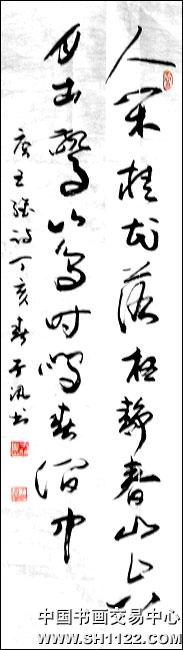 人闲桂花落夜静春山空
月出驚山鸟时鸣春涧中
唐王维诗丁亥春子书
中国书画交易中心
www.SH1122.com